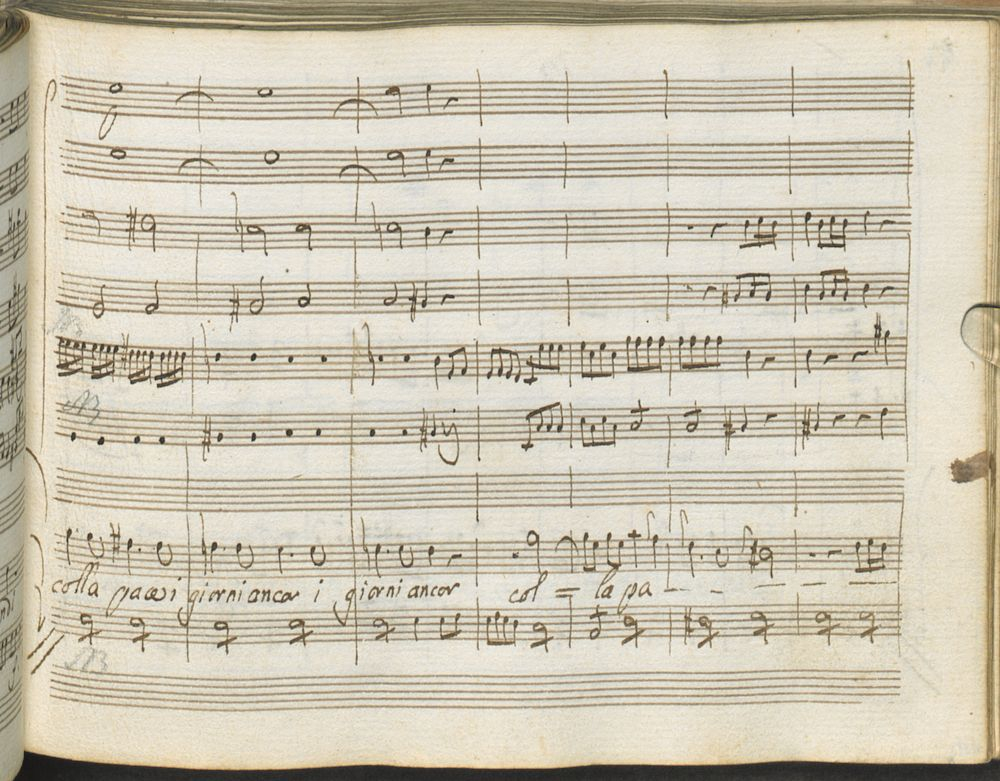 colla pace i giorni ancor i giorni ancor col = la pa - - - - - -